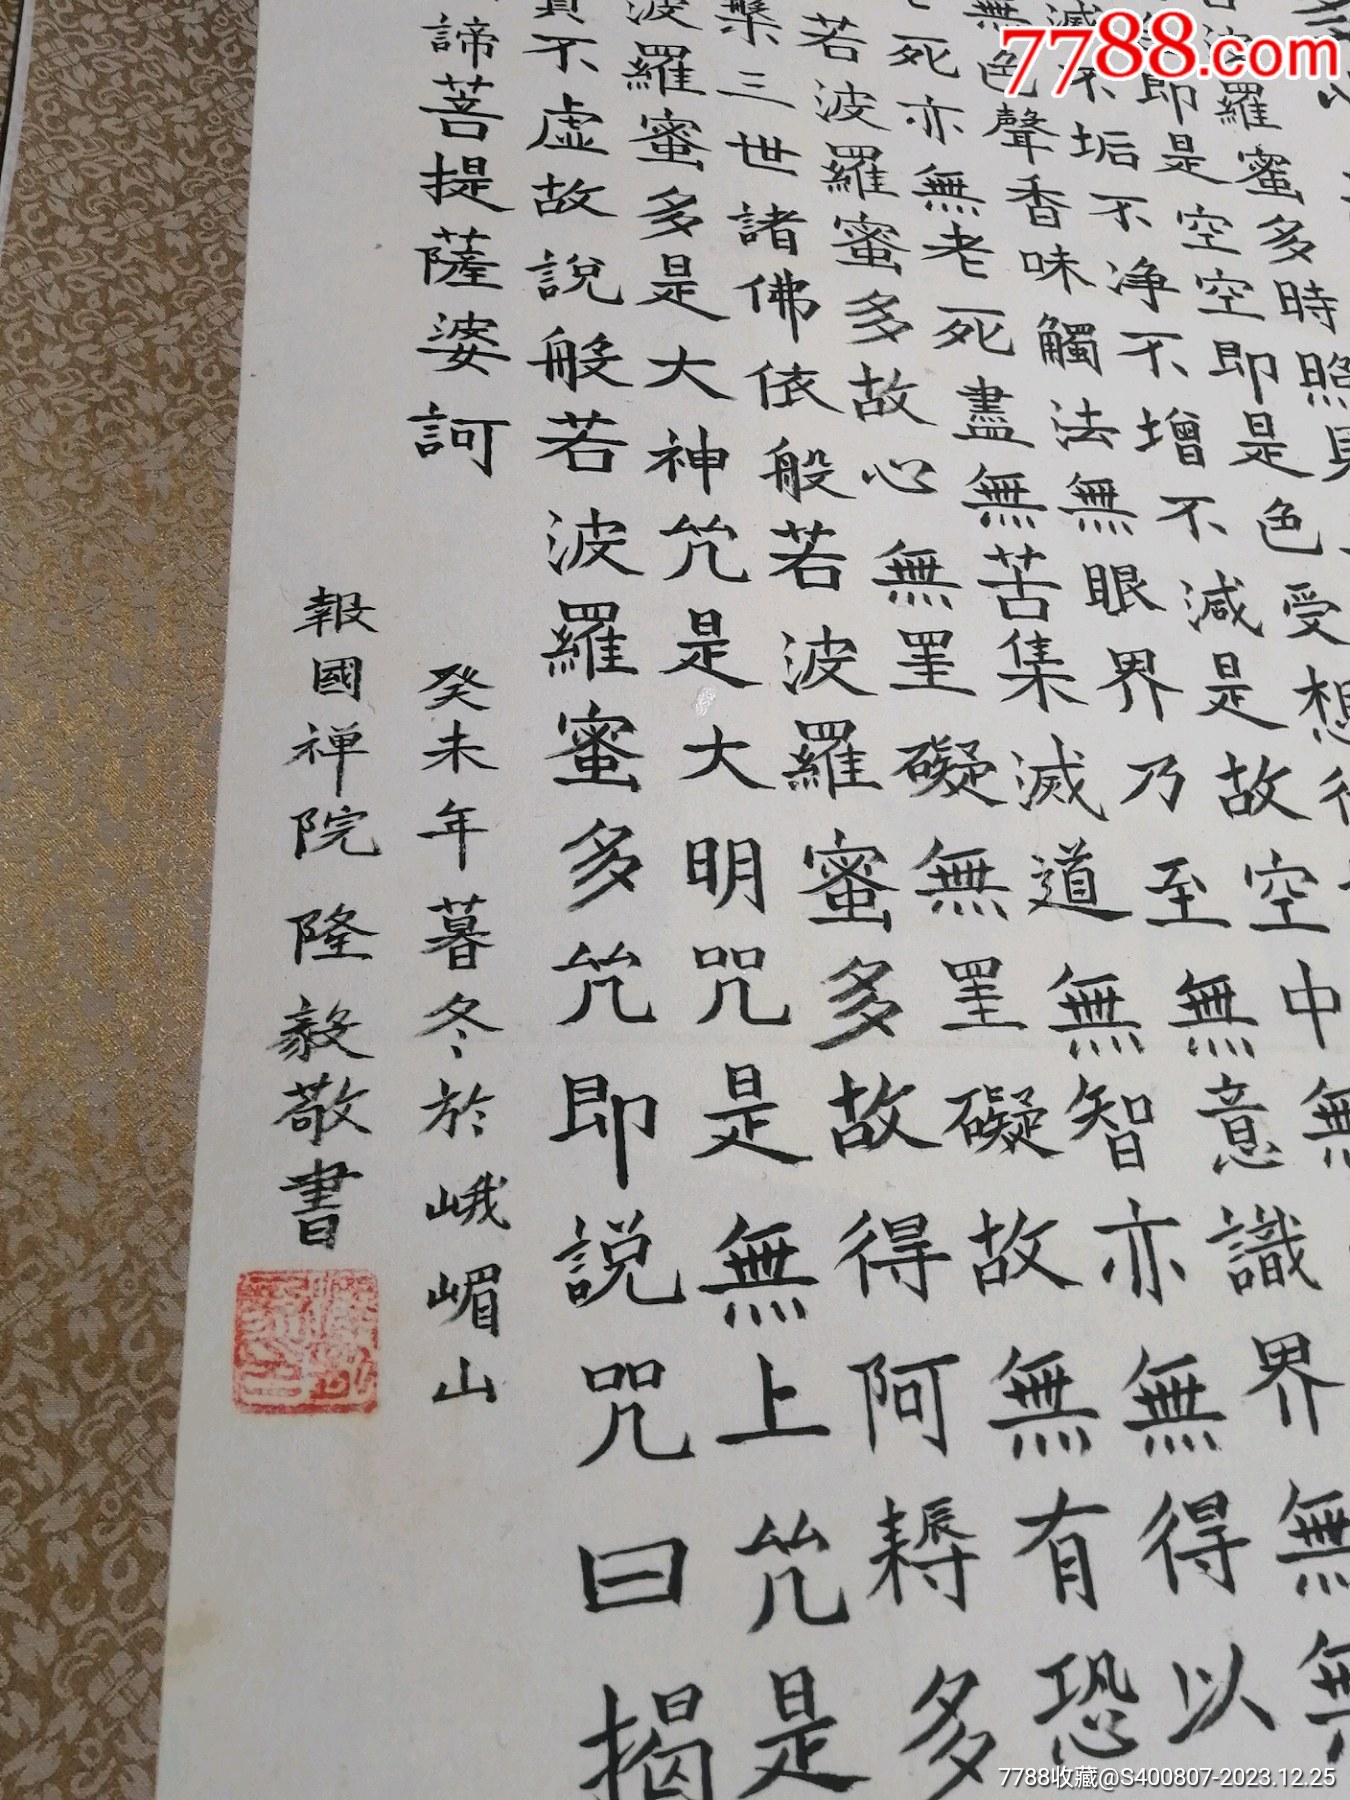 7788.com
羅蜜多時照見
即是空空即是色受想
不垢不净不增不減是故空中無
色聲香味觸法無眼界乃至無意識界無
死亦無老死盡無苦集滅道無智亦無得以
若波羅蜜多故心無罣礙無罣礙故無有恐
三世諸佛依般若波羅蜜多故得阿耨多
波羅蜜多是大神咒是大明咒是無上咒是
不虛故說般若波羅蜜多咒即說咒曰揭
諦菩提薩婆訶
癸未年暮冬於峨嵋山
報國禅院隆毅敬書
7788收藏@S400807-2023.12.25